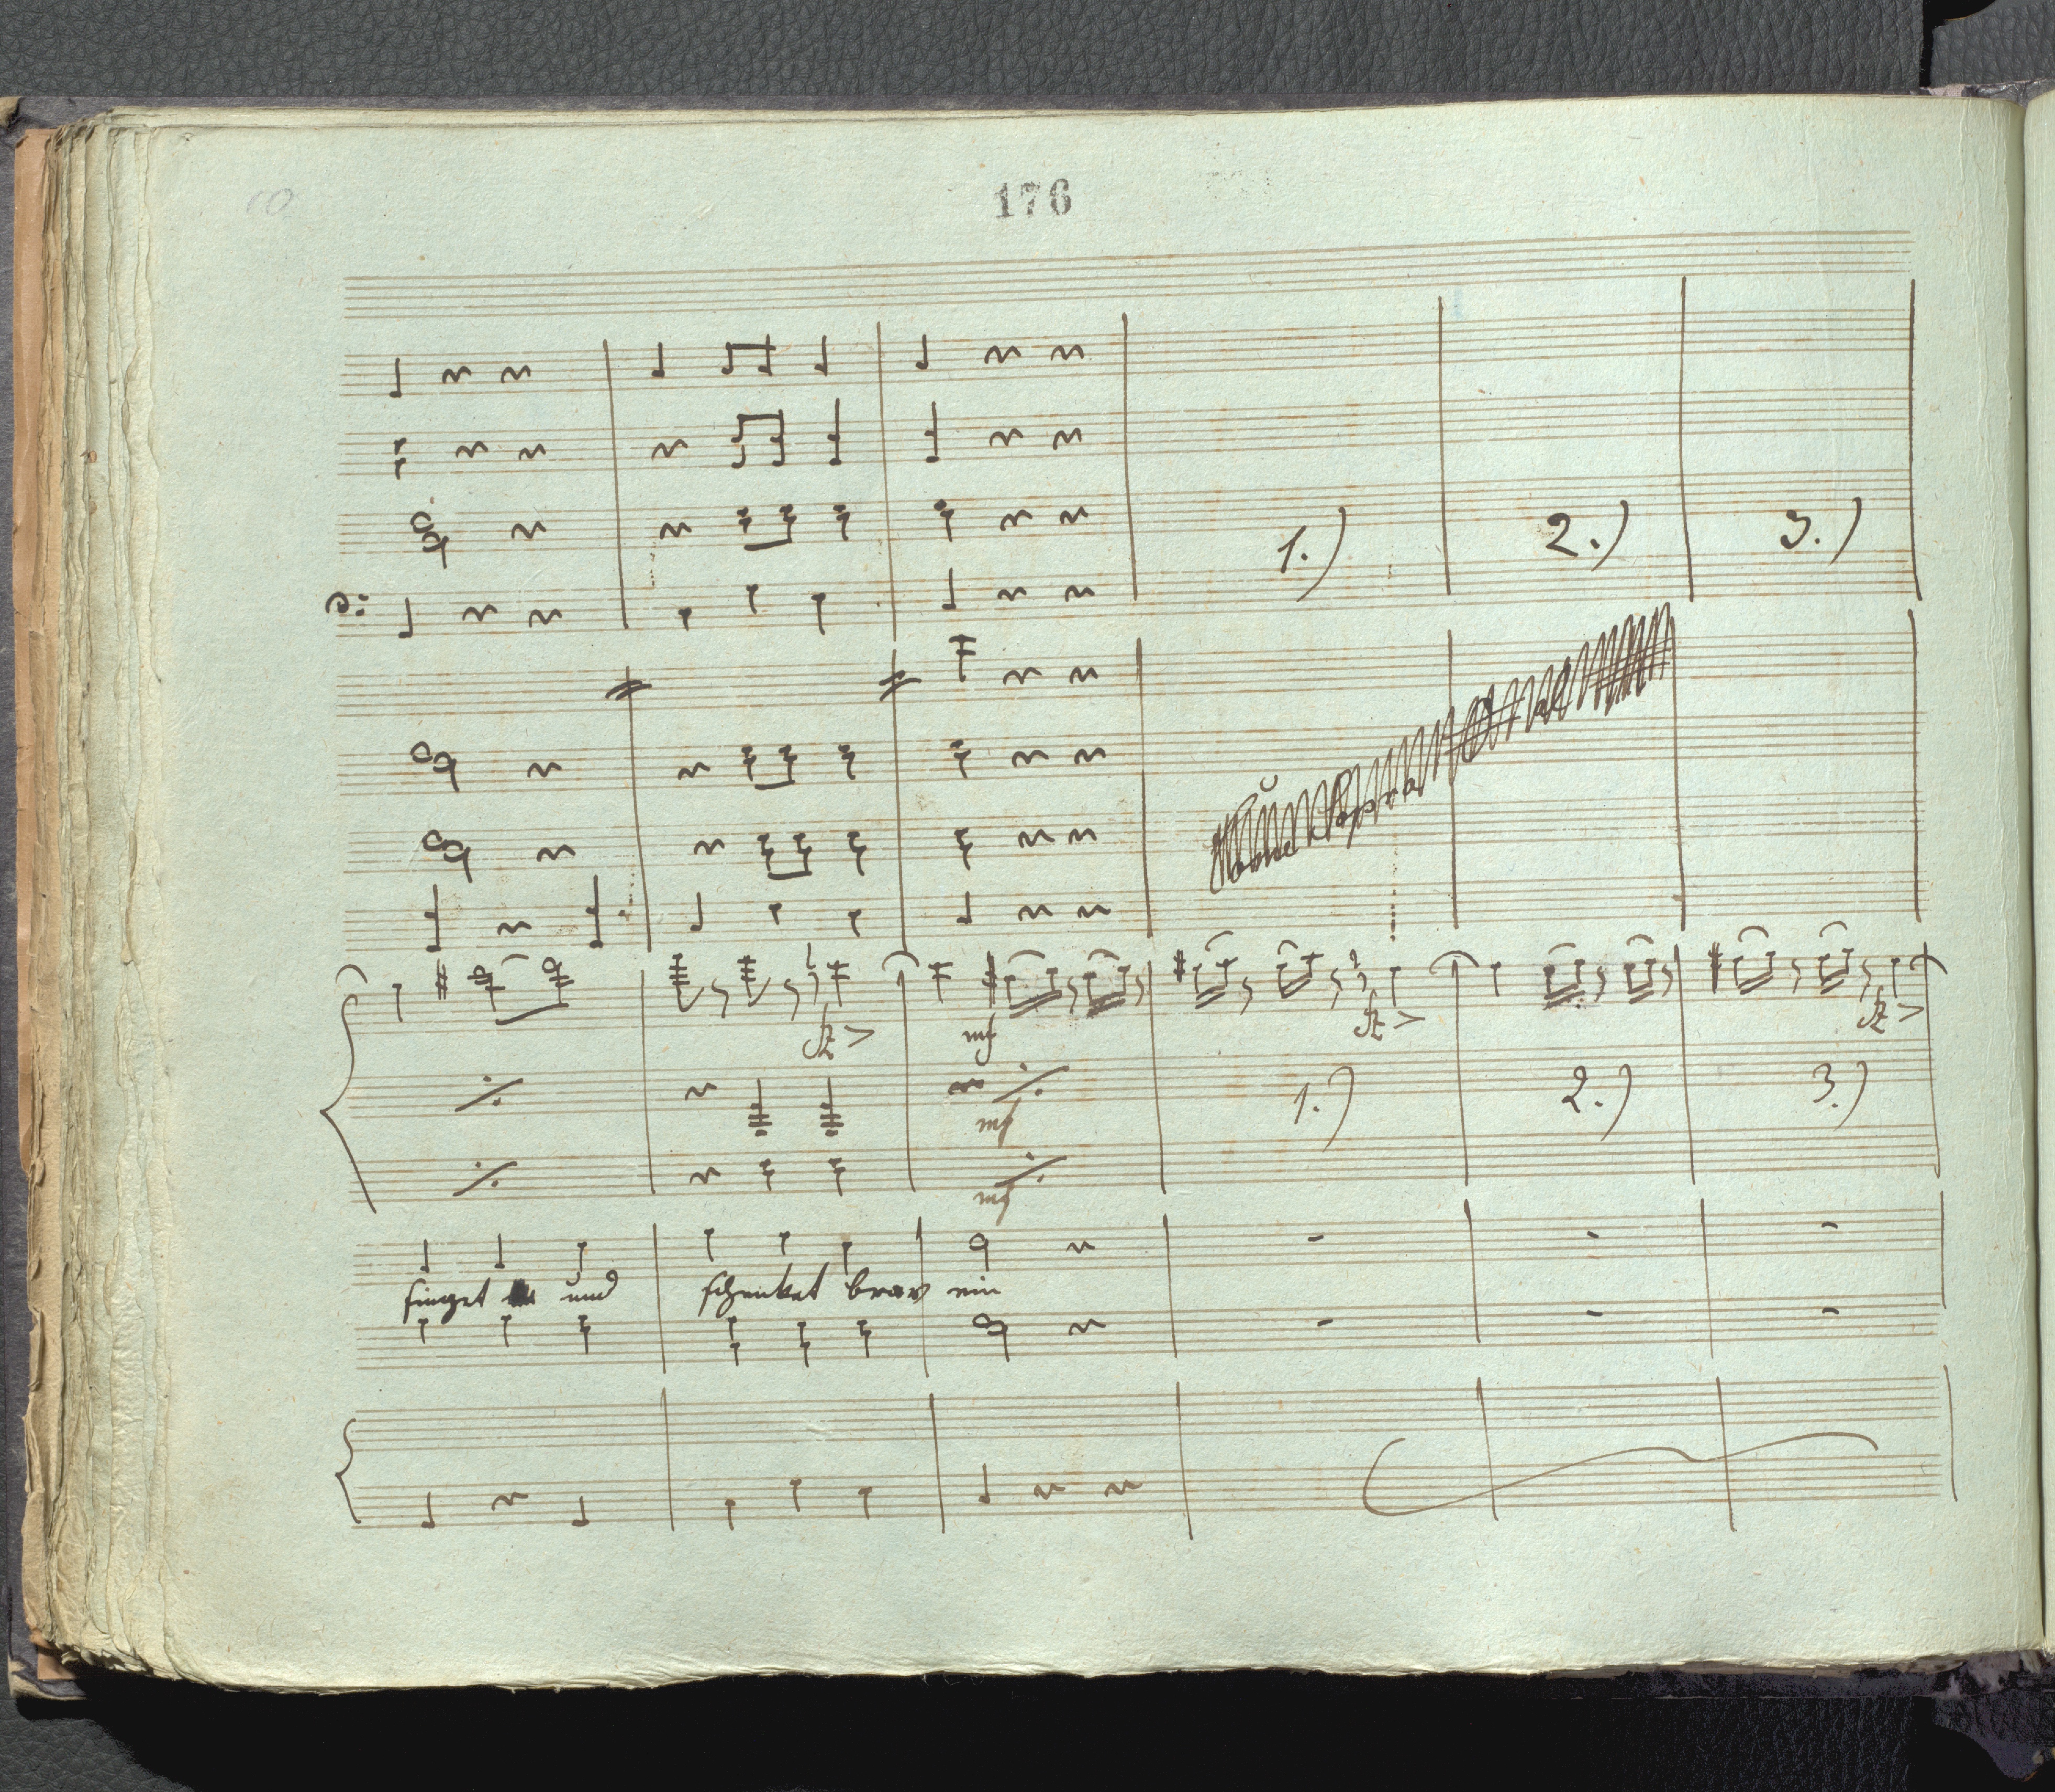 176
1.) 2.) 3.)
fz > fz > fz >
mf
1.) 2.) 3.)
mf
mf
singet und schenket brav ein